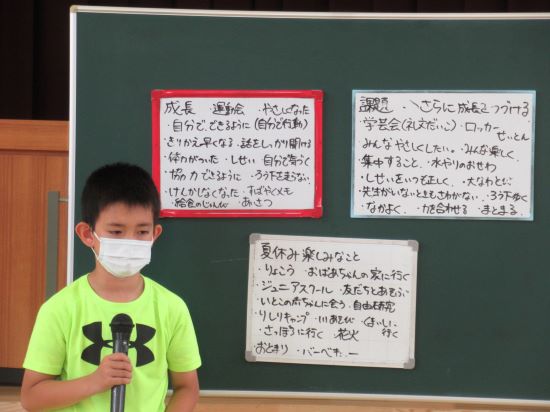 成長 運動会 やさしくなった
・自分で、できるように(自分で行動)
・きりかえ早くなる・話をしっかり聞ける
・体力がついた ・しせい 自分で気づく
・協力できるように ・ろう下を走らない
・けんかしなくなった ・すばやくメモ
・給食のじゅんび ・あいさつ
課題 さらに成長しつづける
・学芸会 ・ロッカーせいとん
みんなやさしくしたい。・みんな楽しく
・集中すること ・水やりのおせわ
・しせいをいつも正しく ・大なわとび
・先生がいないときもさわがない ・ろう下歩く
・なかよく ・力を合わせる ・まとまる
夏休み楽しみなこと
・りょこう ・おばあちゃんの家に行く
・ジュニアスクール ・友だちとあそぶ
・いとこの赤ちゃんに会う ・自由研究
・りしりキャンプ ・川あそび
・さっぽろに行く ・花火 行く
おとまり ・バーベキュー